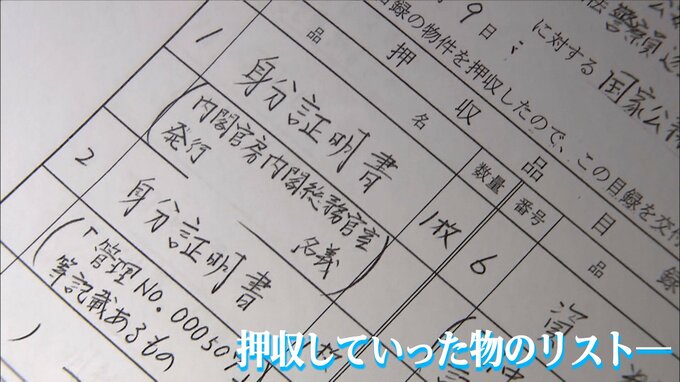 9日
に対する国家公務
目録の物件を押収したので、この目録を交付
押収品
品名
数量
番号
品
録
1
身分証明書
(内閣官房内閣総務官室
発行
名義)
1枚
6
2
身分証明書
(「管理No.00050」
等記載あるもの
押収していった物のリスト―